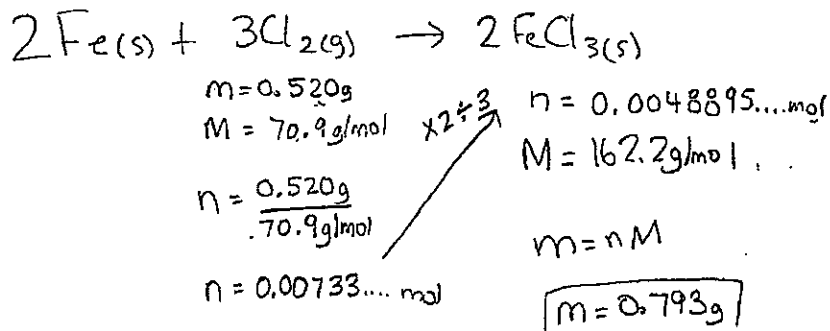 2Fe(s) + 3Cl2(g) → 2FeCl3(s)
m=0.520g
M = 70.9g/mol
n = 0.520g
70.9g/mol
n = 0.00733.... mol
×2÷3
n = 0.0048895....mol
M = 162.2g/mol
m=nM
m=0.793g